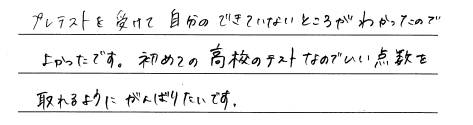 プレテストを受けて自分のできていないところがわかったので
よかったです。初めての高校のテストなのでいい点数を
取れるようにがんばりたいです。